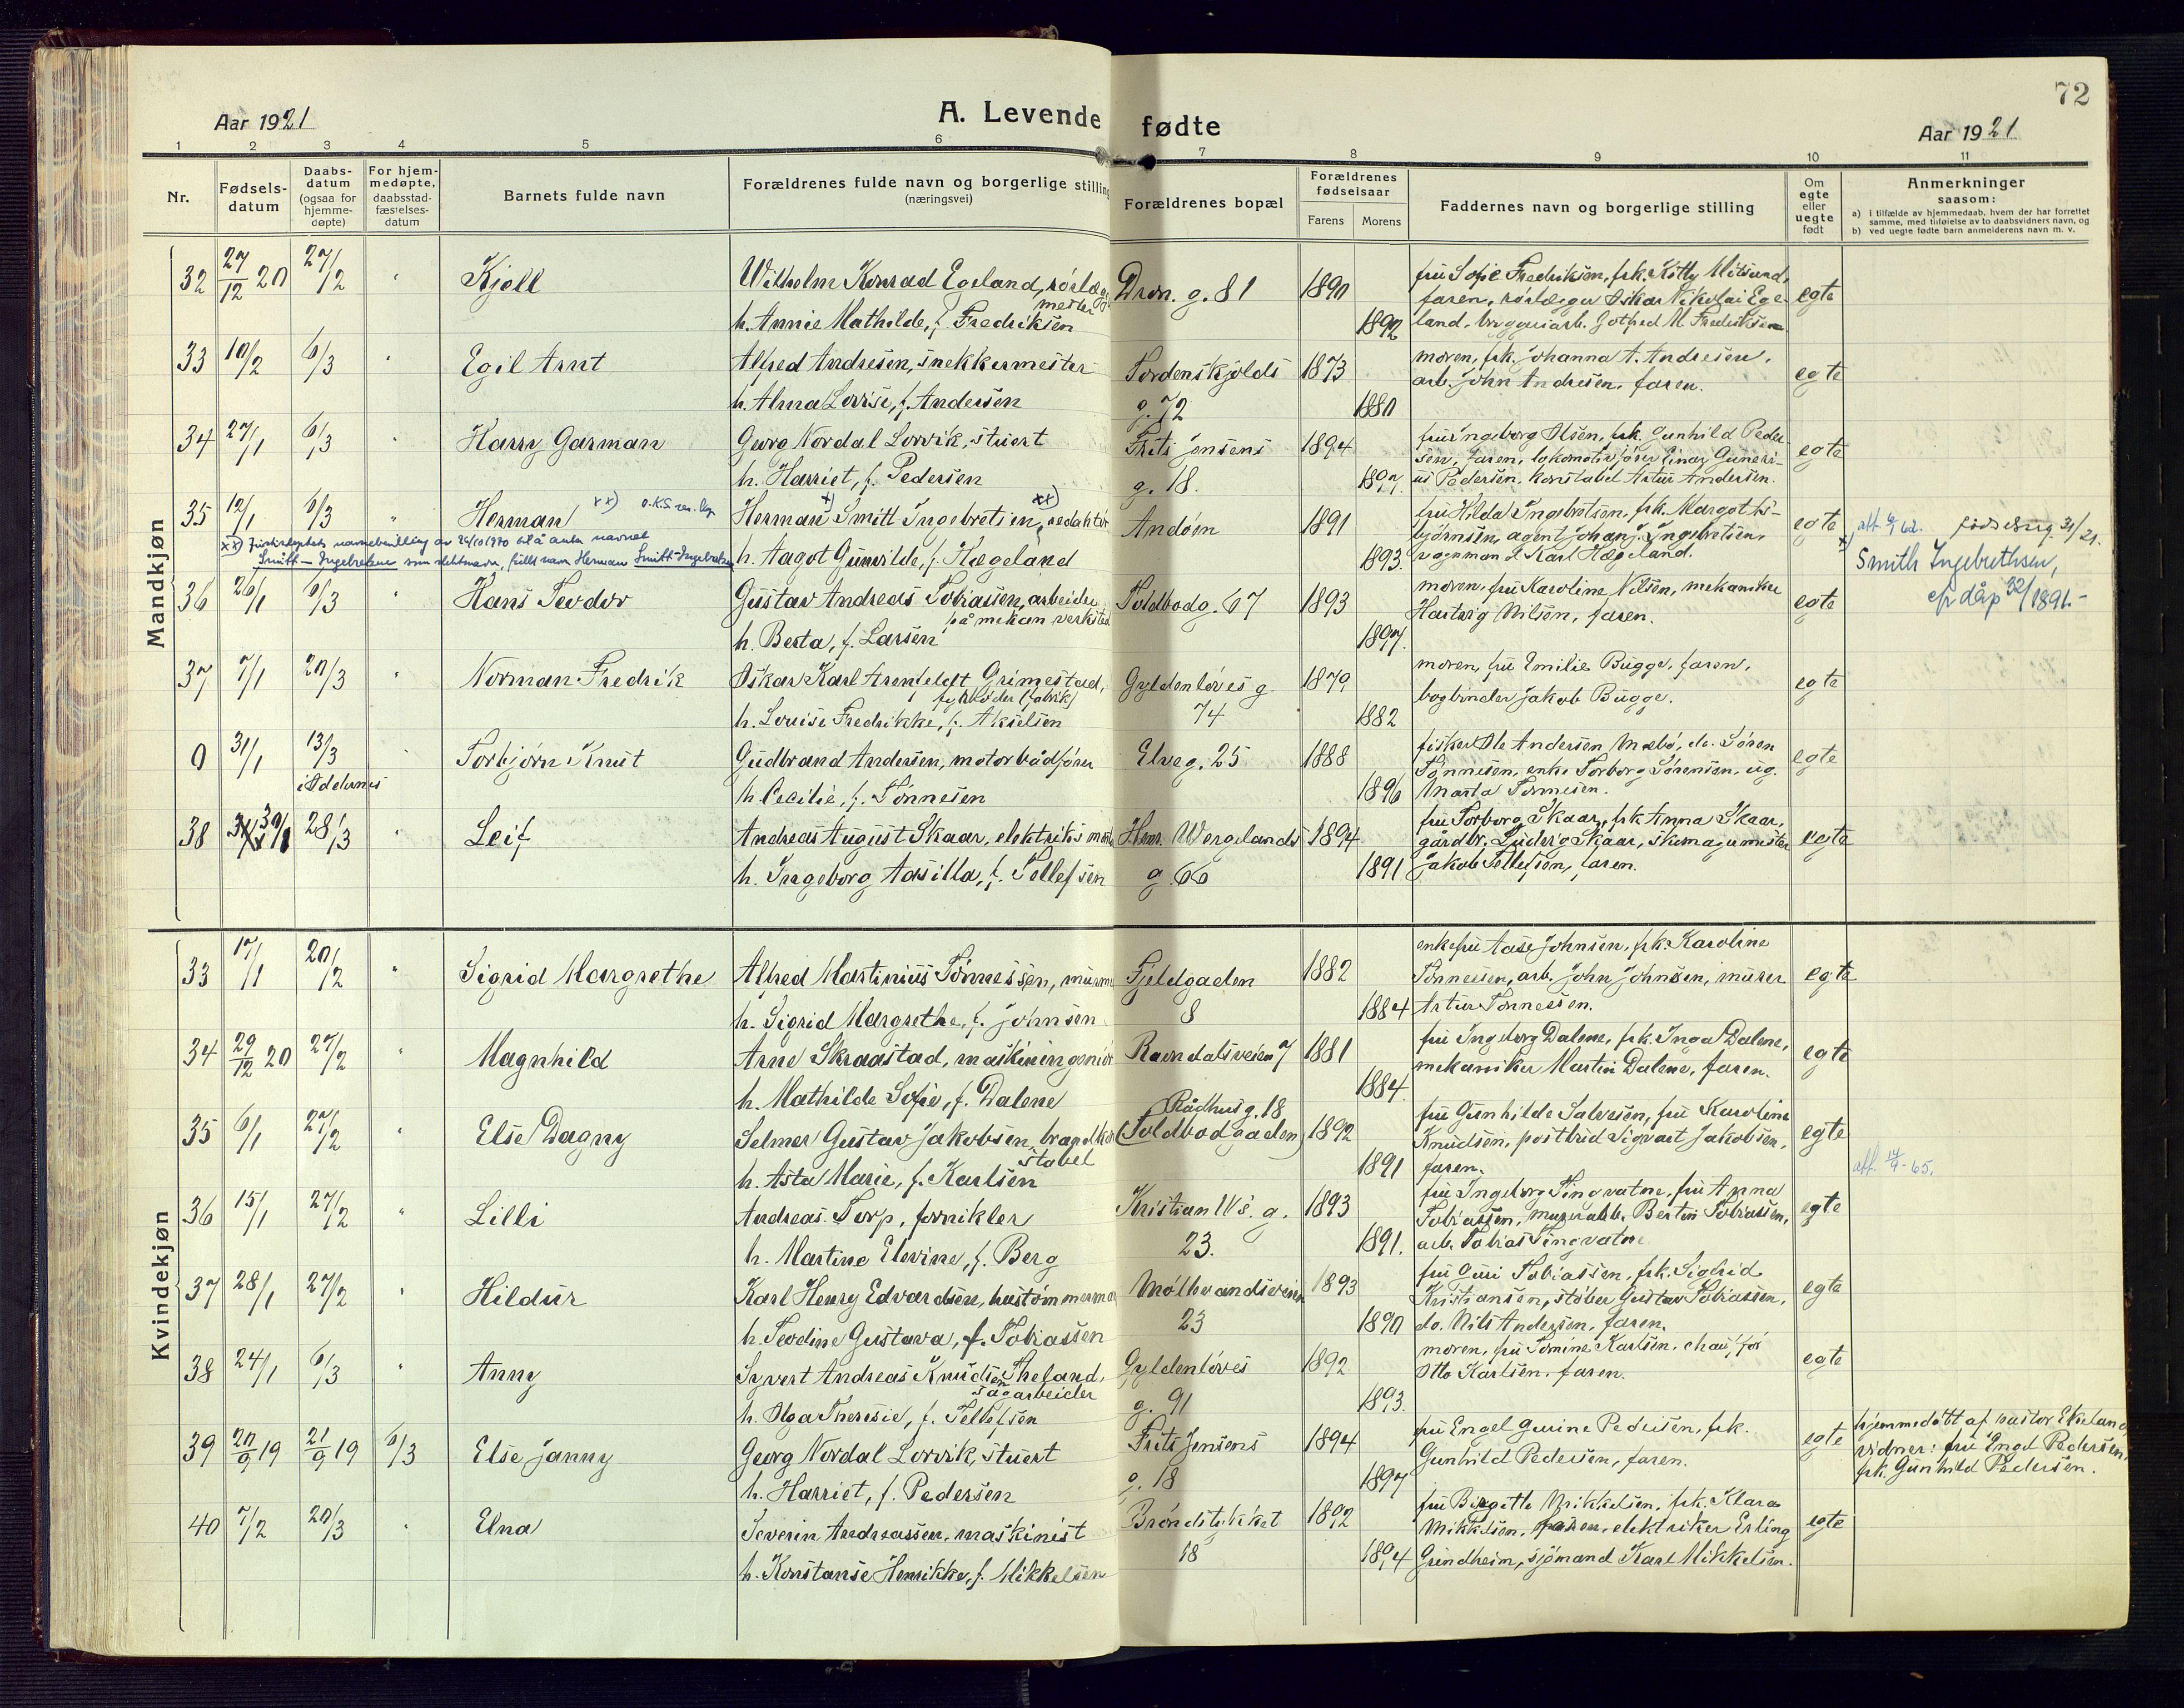 72
Aar 1921
A. Levende fødte
Aar 1921
1 2 3 4 5 6 7 8 9 10 11
Nr.
Fødsels-
datum
Daabs-
datum
(ogsaa for
hjemme-
døpte)
For hjem-
medøpte,
daabsstad-
fæstelses-
datum
Barnets fulde navn
Forældrenes fulde navn og borgerlige stilling
(næringsvei)
Forældrenes bopæl
Forældrenes
fødselsaar
Farens Morens
Faddernes navn og borgerlige stilling
Om
egte
eller
uegte
født
Anmerkninger
saasom:
a) i tilfælde av hjemmedaab, hvem der har forrettet
samme, med tilføielse av to daabsvidners navn, og
b) ved uegte fødte barn anmelderens navn m. v.
Mandkjøn
32 27/12 20 27/2 " Kjell Wilhelm Konrad Egeland, rørlægger Dron. g. 81 1890 fru Sofie Fredriksen, frk. Kitty Milsund, egte
mester
faren, rørlægger Oskar Nikolai Ege-
h. Annie Mathilde, f. Fredriksen 1892 land, bryggeriarb. Gotfred M. Fredriksen
33 10/2 6/3 " Egil Arnt Alfred Andresen, snekkermester Tordenskjolds 1873 moren, frk. Johanna A. Andresen, egte
arb. John Andresen, faren.
h. Alma Lovise, f. Andersen g. 72 1880
34 27/1 6/3 " Harry Garman Georg Nordal Lorvik, stuert Frits Jensens 1894 fru Ingeborg Olsen, frk. Gunhild Peder- egte
sen, faren, lokomotivfører Einar Guneri-
h. Harriet, f. Pedersen g. 18. 1897. us Pedersen, konstabel Artur Andersen.
35 12/1 6/3 " Herman xx) Herman x) Smitt Ingebretsen, xx) redaktør Andøen 1891 fru Hilda Ingebretsen, frk. Margot Is- egte att. 6/9 62. fødselsreg. 31/21.
bjørnsen, agent Johan J. Ingebretsen,
xx) Justisdeptets navnebevilling av 24/10 1970 til å anta navnet
Smitt-Ingebretsen som slektsnavn, fullt navn Herman Smitt-Ingebretsen
h. Aagot Gunvilde, f. Hægeland 1893. vognmand Karl Hægeland.
x) Smith Ingebrethsen,
efr dåp 32/1891.-
36 26/1 6/3 " Hans Teodor Gustav Andreas Tobiassen, arbeider Toldbodg. 67 1893 moren, fru Karoline Nilsen, mekaniker egte
på mekan verksted Hartvig Nilsen, faren.
h. Berta, f. Larsen 1897.
37 7/1 20/3 " Norman Fredrik Oskar Karl Arenfeldt Grimestad, Gyldenløves g. 1879 moren, fru Emilie Bugge, faren, egte
fyrbøder (fabrik) bogbinder Jakob Bugge.
h. Louise Fredrikke, f. Akselsen 74 1882
0 31/1 13/3 " Torbjørn Knut Gudbrand Andersen, motorbådfører Elveg. 25 1888 fisker Ole Andersen Mæbø, do. Søren egte
i Oddernes Tønnesen, enke Torborg Sørensen, ug.
h. Cecilie, f. Tønnesen 1896 Marta Tønnesen.
38 30/1 28/3 " Leif Andreas August Skaar, elektrisk Henr. Wergelands 1894 fru Torborg Skaar, frk Anna Skaar, egte
gårdbr. Ludvig Skaar, skomagermester
h. Ingeborg Aasilla, f. Tellefsen g. 66 1891 Jakob Tellefsen, faren.
Kvindekjøn
33 17/1 20/2 " Sigrid Margrethe Alfred Martinius Tønnessen, murer Fjeldgaden 1882 enkefru Aase Johnsen, frk. Karoline egte
Tønnessen, arb. John Johnsen, murer
h. Sigrid Margrethe, f. Johnsen 8 1884 Artur Tønnessen.
34 29/12 20 27/2 " Magnhild Arne Skraastad, maskiningeniør Ravndalsveien 7 1881 fru Ingeborg Dalene, frk. Inga Dalene, egte
mekaniker Martin Dalene, faren.
h. Mathilde Sofie, f. Dalene 1884.
Rådhusg. 18
35 6/1 27/2 " Else Dagny Selmer Gustav Jakobsen, brandkon- (Toldbodgaden) 1892 fru Gunhilde Salvesen, fru Karoline egte
stabel Knudsen, postbud Sigvart Jakobsen,
h. Asta Marie, f. Karlsen 1891 faren. att. 14/9-65.
36 15/1 27/2 " Lilli Andreas Torp, fornikler Kristian IV's. g. 1893 fru Ingeborg Tingvatne, fru Anna egte
Tobiassen, murarb. Bertin Tobiassen,
h. Martine Elevine, f. Berg 23. 1891. arb. Tobias Tingvatne
37 28/1 27/2 " Hildur Karl Henry Edvardsen, hustømmermand Møllevandsveien 1893 fru Guri Tobiassen, frk. Sigfrid egte
Kristiansen, støber Gustav Tobiassen,
h. Teodine Gustava, f. Tobiassen 23 1890 do. Nils Andersen, faren.
38 24/1 6/3 " Anny Syvert Andreas Knudsen Theland, Gyldenløves 1892 moren, fru Tomine Karlsen, chauffør egte
sagarbeider Otto Karlsen, faren.
h. Olga Theresie, f. Tellefsen g. 91 1893.
39 20/9 19 21/9 19 6/3 Else Janny Georg Nordal Lorvik, stuert Frits Jensens 1894 fru Engel Gurine Pedersen, frk. egte hjemmedøbt af pastor Ekeland
Gunhild Pedersen, faren. vidner: fru Engel Pedersen,
h. Harriet, f. Pedersen g. 18 1897 frk. Gunhild Pedersen.
40 7/2 20/3 " Elna Severin Andreassen, maskinist Brøndstykket 1892 fru Birgitte Mikkelsen, frk. Klara egte
Mikkelsen, faren, elektriker Erling
h. Konstanse Henrikke, f. Mikkelsen 18 1894 Grindheim, sjømand Karl Mikkelsen.